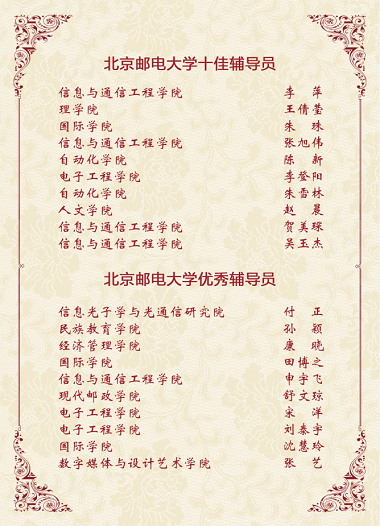 北京邮电大学十佳辅导员
信息与通信工程学院 李 萍
理学院 王倩莹
国际学院 朱 珠
信息与通信工程学院 张旭伟
自动化学院 陈 新
电子工程学院 李登阳
自动化学院 朱雪林
人文学院 赵 晨
信息与通信工程学院 贺美琛
信息与通信工程学院 吴玉杰
北京邮电大学优秀辅导员
信息光子学与光通信研究院 付 正
民族教育学院 孙 颖
经济管理学院 康 晓
国际学院 田博之
信息与通信工程学院 申宇飞
现代邮政学院 舒文琼
电子工程学院 宋 洋
电子工程学院 刘泰宇
国际学院 沈慧玲
数字媒体与设计艺术学院 张 艺